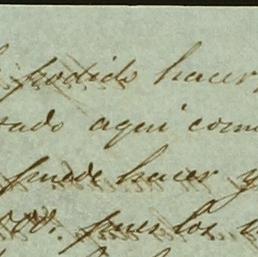 podido hacer,
tado aqui com
puede hacer y
000. pues los